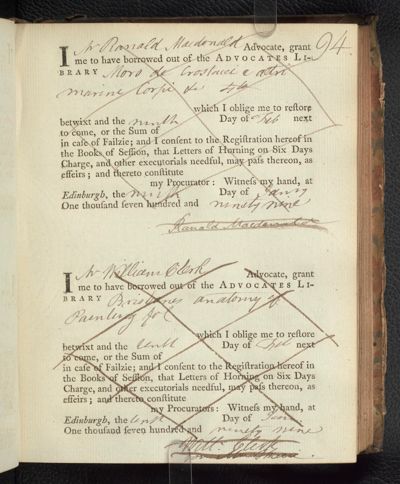 94.
I Mr Ranald Macdonald Advocate, grant
me to have borrowed out of the ADVOCATES LI-
BRARY Moro de Crostacei e altri
marine Corpi &c 4to
which I oblige me to restore
betwixt and the ninth Day of Feb next
to come, or the Sum of
in case of Failzie; and I consent to the Registration hereof in
the Books of Session, that Letters of Horning on Six Days
Charge, and other executorials needful, may pass thereon, as
effeirs; and thereto constitute
my Procurator: Witness my hand, at
Edinburgh, the ninth Day of Janry
One thousand seven hundred and ninety nine
Ranald Macdonald
I Mr William Clerk Advocate, grant
me to have borrowed out of the ADVOCATES LI-
BRARY Brisbanes anatomy of
Painting fol
which I oblige me to restore
betwixt and the tenth Day of Feb next
to come, or the Sum of
in case of Failzie; and I consent to the Registration hereof in
the Books of Session, that Letters of Horning on Six Days
Charge, and other executorials needful, may pass thereon, as
effeirs; and thereto constitute
my Procurators: Witness my hand, at
Edinburgh, the tenth Day of Janry
One thousand seven hundred and ninety nine
Will. Clerk